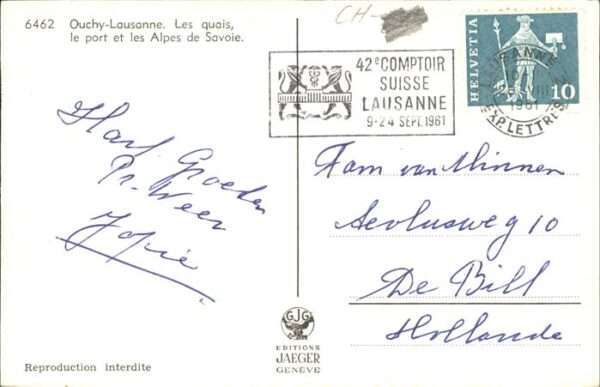 6462 Ouchy-Lausanne. Les quais,
le port et les Alpes de Savoie.
CH-
42e COMPTOIR
SUISSE
LAUSANNE
9-24 SEPT. 1961
HELVETIA
10
LAUSANNE
1961
EXP. LETTRES
Hart. Groeten
Pr. Weer
Jopie
Fam van Minnen
Aeolusweg 10
De Bill
Hollande
GJG
EDITIONS
JAEGER
GENÈVE
Reproduction interdite